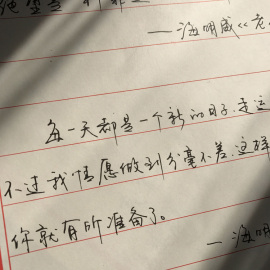 ——海明威《老
每一天都是一个新的日子.走运
不过我情愿做到分毫不差.这样
你就有所准备了。
——海明